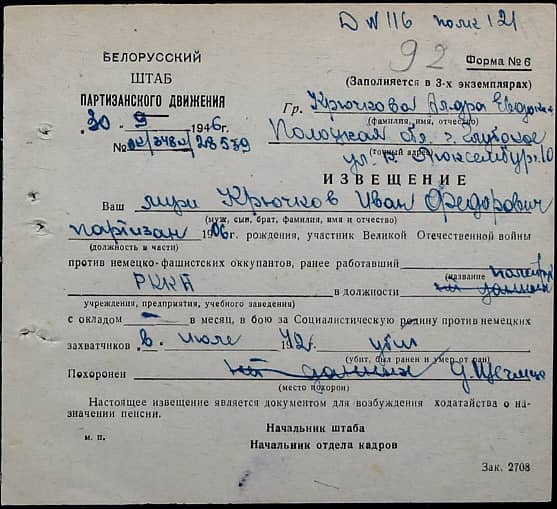 Д №116 полк 121
92
БЕЛОРУССКИЙ
ШТАБ
ПАРТИЗАНСКОГО ДВИЖЕНИЯ
"30" 9 1946г.
№
Форма № 6
(Заполняется в 3-х экземплярах)
Гр. Крючкова
(фамилия, имя, отчество)
Полоцкая обл г. Глубокое
(точный адрес)
ул. Р. Люксембург. 10
ИЗВЕЩЕНИЕ
Ваш муж Крючков Иван Федорович
(муж, сын, брат, фамилия, имя и отчество)
партизан 1906г. рождения, участник Великой Отечественной войны
(должность в части)
против немецко-фашистских оккупантов, ранее работавший
(название
РККА в должности политрук нет данных
учреждения, предприятия, учебного заведения)
с окладом — в месяц, в бою за Социалистическую родину против немецких
захватчиков в июле 1942г. убит
(убит, был ранен и умер от ран)
Похоронен нет данных д.
(место похорон)
Настоящее извещение является документом для возбуждения ходатайства о на-
значении пенсии.
Начальник штаба
м. п.
Начальник отдела кадров
Зак. 2708